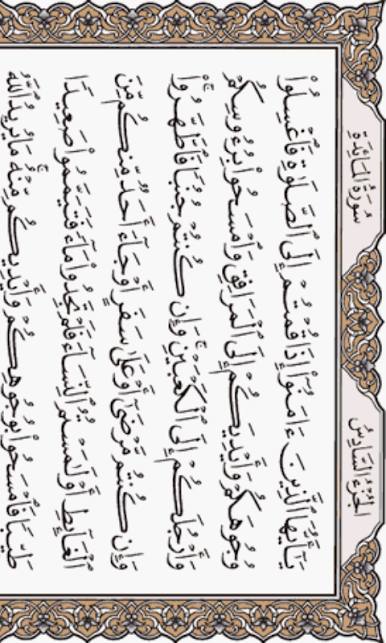 الجُزْءُ السَّادِسُ
سُورَةُ المَائِدَةِ
يَٰٓأَيُّهَا ٱلَّذِينَ ءَامَنُوٓاْ إِذَا قُمْتُمْ إِلَى ٱلصَّلَوٰةِ فَٱغْسِلُواْ
وُجُوهَكُمْ وَأَيْدِيَكُمْ إِلَى ٱلْمَرَافِقِ وَٱمْسَحُواْ بِرُءُوسِكُمْ
وَأَرْجُلَكُمْ إِلَى ٱلْكَعْبَيْنِۚ وَإِن كُنتُمْ جُنُبًا فَٱطَّهَّرُواْۚ
وَإِن كُنتُم مَّرْضَىٰٓ أَوْ عَلَىٰ سَفَرٍ أَوْ جَآءَ أَحَدٌ مِّنكُم مِّنَ
ٱلْغَآئِطِ أَوْ لَٰمَسْتُمُ ٱلنِّسَآءَ فَلَمْ تَجِدُواْ مَآءً فَتَيَمَّمُواْ صَعِيدًا
طَيِّبًا فَٱمْسَحُواْ بِوُجُوهِكُمْ وَأَيْدِيكُم مِّنْهُۚ مَا يُرِيدُ ٱللَّهُ